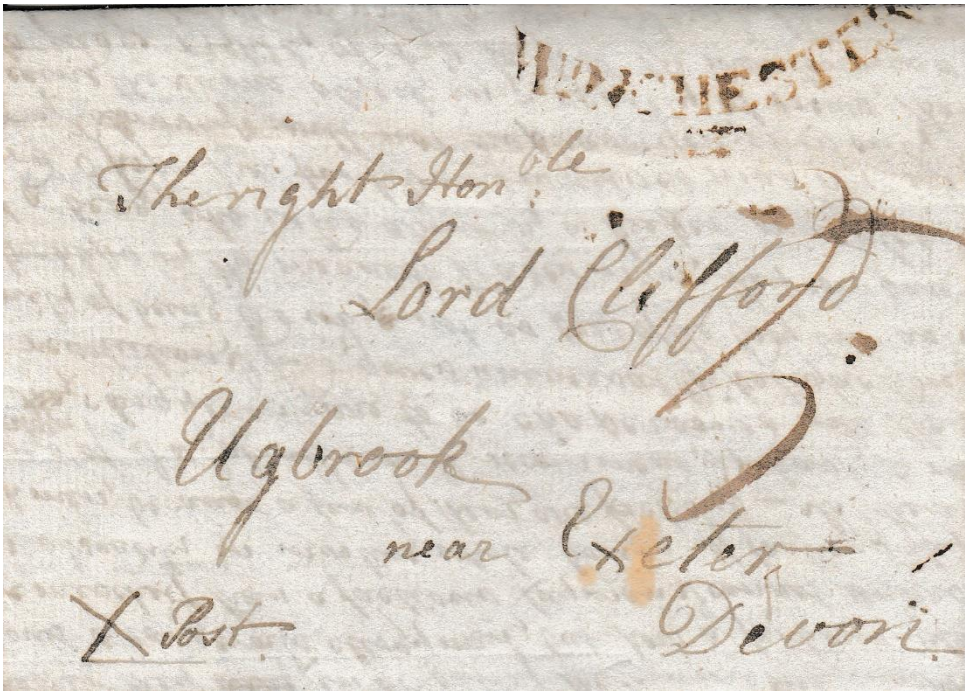 WINCHESTER
The right Hon:ble
Lord Clifford
5
Ugbrook
near Exeter
Devon
X Post